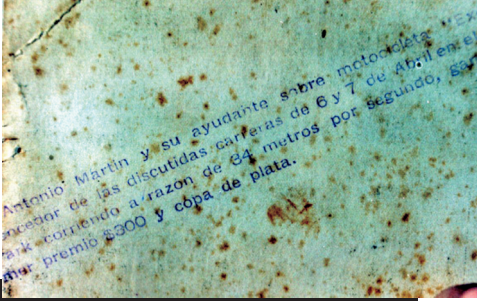 Antonio Martin y su ayudante sobre motocicleta "Ex
encedor de las discutidas carreras de 6 y 7 de Abril en el
ark corriendo a razon de 34 metros por segundo, ga
mer premio $300 y copa de plata.